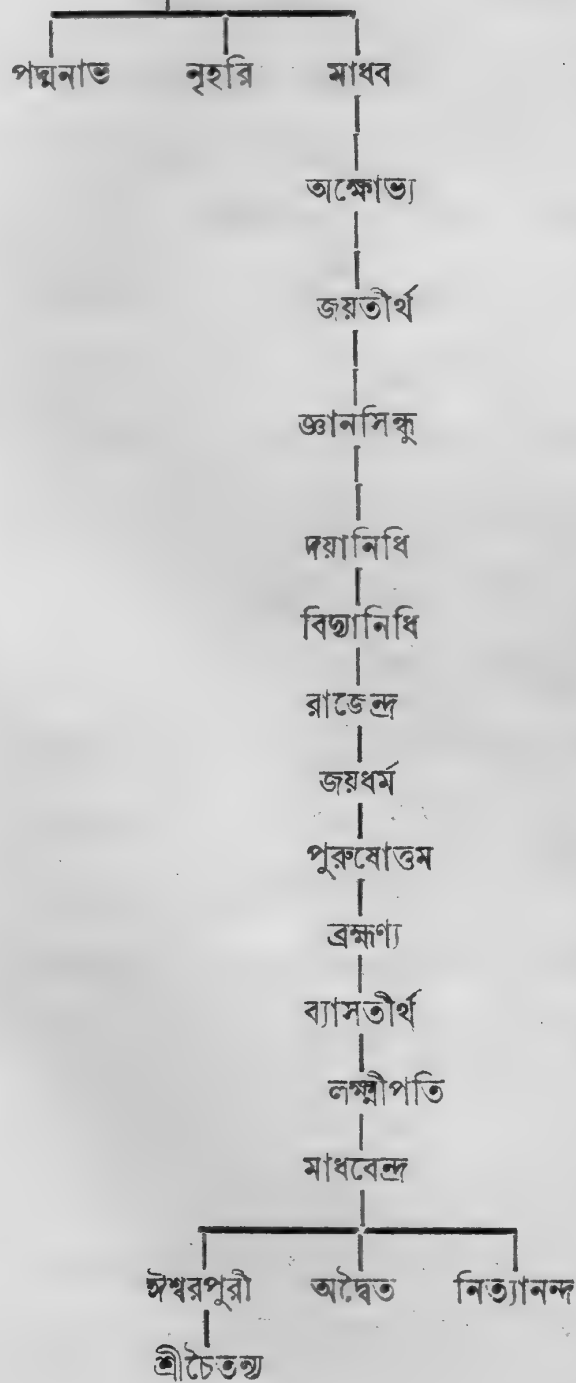 পদ্মনাভ নৃহরি মাধব
অক্ষোভ্য
জয়তীর্থ
জ্ঞানসিন্ধু
দয়ানিধি
বিদ্যানিধি
রাজেন্দ্র
জয়ধর্ম
পুরুষোত্তম
ব্রহ্মণ্য
ব্যাসতীর্থ
লক্ষ্মীপতি
মাধবেন্দ্র
ঈশ্বরপুরী অদ্বৈত নিত্যানন্দ
শ্রীচৈতন্য